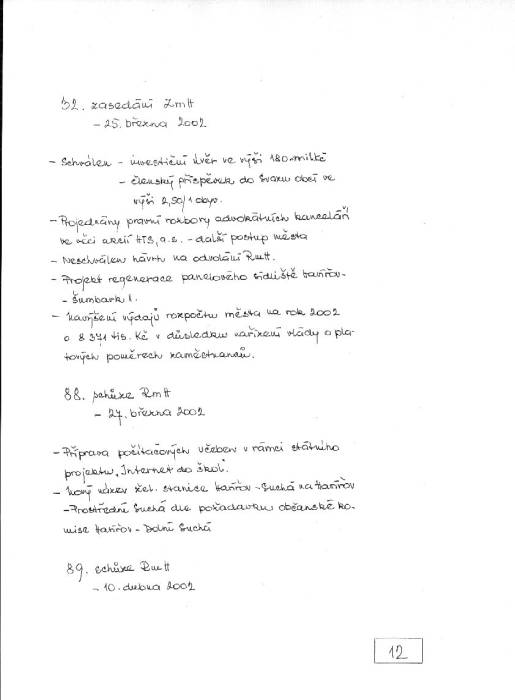 32. zasedání ZmH
- 25. března 2002
- Schválen - investiční úvěr ve výši 180 mil Kč
- členský příspěvek do Svazu obcí ve
výši 2,50/1 obyv.
- Projednány právní rozbory advokátních kanceláří
ve věci akcií HTS, a.s. - další postup města
- Neschválen návrh na odvolání RmH.
- Projekt regenerace panelového sídliště Havířov-
- Šumbark I.
- Navýšení výdajů rozpočtu města na rok 2002
o 8 371 tis. Kč v důsledku nařízení vlády o pla-
tových poměrech zaměstnanců.
88. schůze RmH
- 27. března 2002
- Příprava počítačových učeben v rámci státního
projektu „Internet do škol“.
- Nový název žel. stanice Havířov - Suchá na Havířov
- Prostřední Suchá dle požadavku občanské ko-
mise Havířov - Dolní Suchá
89. schůze RmH
- 10. dubna 2002
12